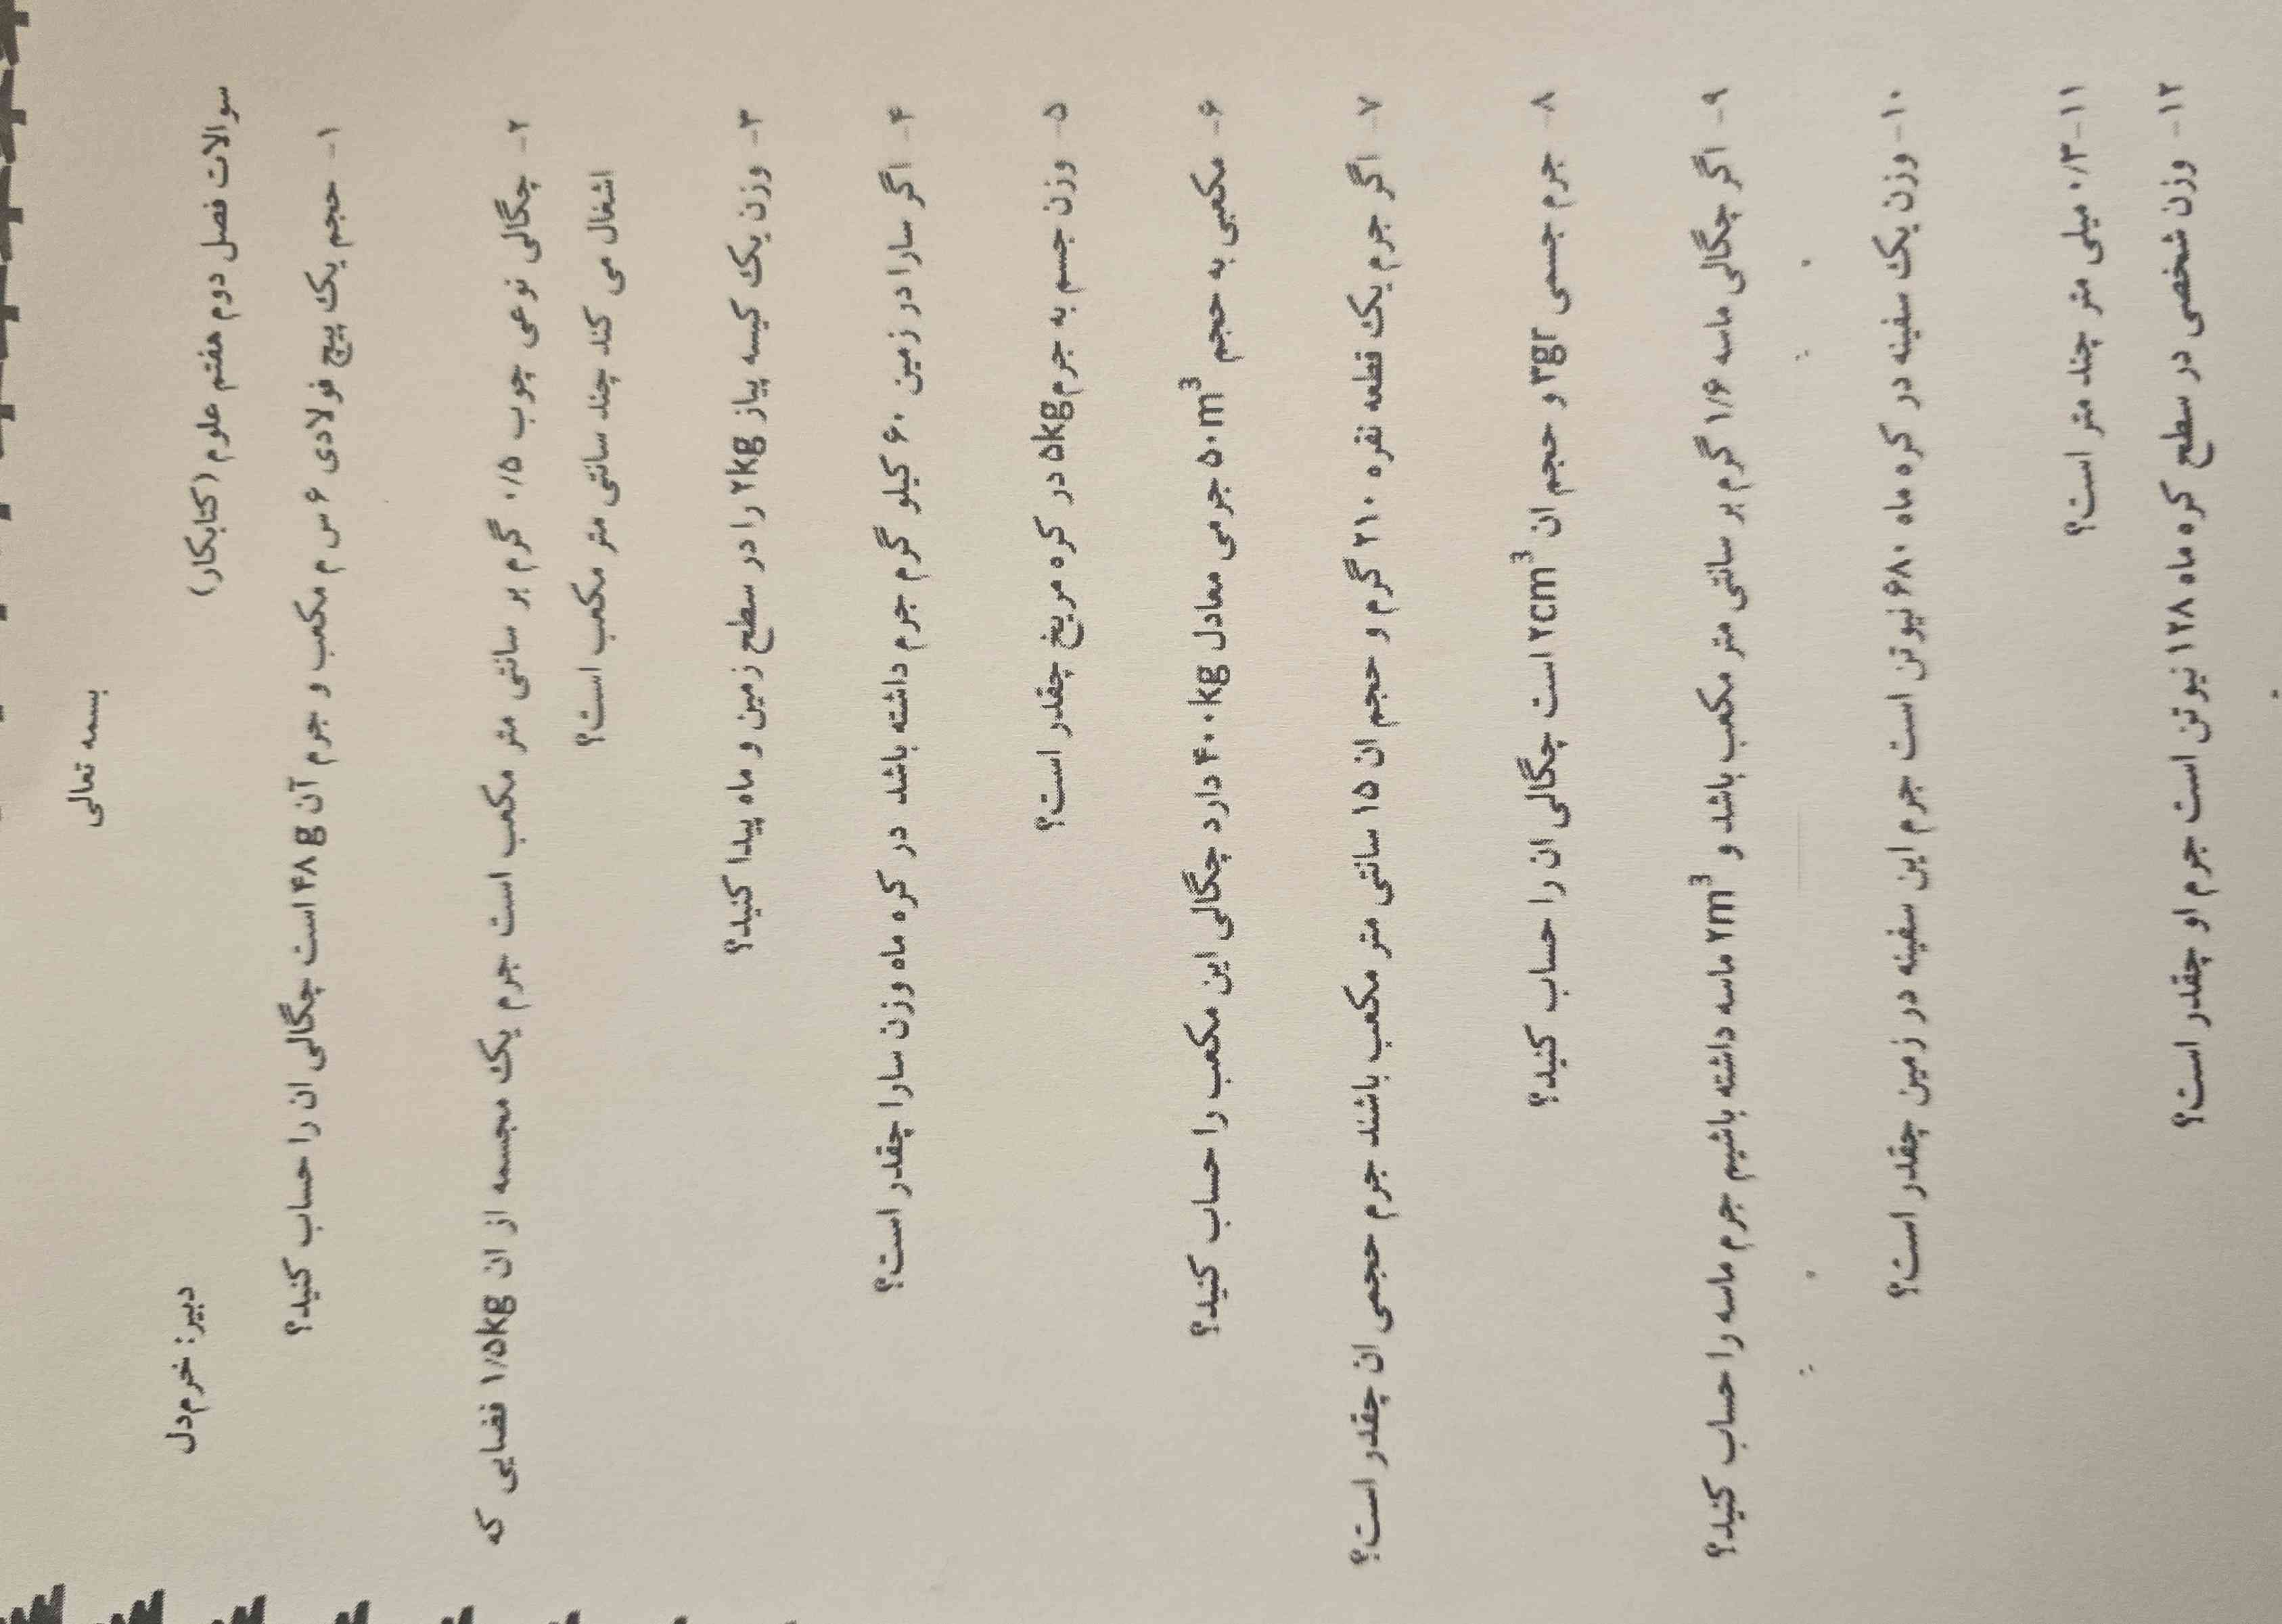 بسمه تعالی
سوالات فصل دوم هفتم علوم (کتابکار)
دبیر: خرم‌دل
۱- حجم یک پیچ فولادی ۶ س م مکعب و جرم آن ۴۸ g است چگالی ان را حساب کنید؟
۲- چگالی نوعی چوب ۰/۵ گرم بر سانتی متر مکعب است جرم یک مجسمه از ان ۱/۵kg فضایی که
اشغال می کند چند سانتی متر مکعب است؟
۳- وزن یک کیسه پیاز ۲kg را در سطح زمین و ماه پیدا کنید؟
۴- اگر سارا در زمین ۶۰ کیلو گرم جرم داشته باشد در کره ماه وزن سارا چقدر است؟
۵- وزن جسم به جرم ۵kg در کره مریخ چقدر است؟
۶- مکعبی به حجم ۵۰m³ جرمی معادل ۴۰۰kg دارد چگالی این مکعب را حساب کنید؟
۷- اگر جرم یک قطعه نقره ۲۱۰ گرم و حجم ان ۱۵ سانتی متر مکعب باشند جرم حجمی ان چقدر است؟
۸- جرم جسمی ۳gr و حجم ان ۲cm³ است چگالی ان را حساب کنید؟
۹- اگر چگالی ماسه ۱/۶ گرم بر سانتی متر مکعب باشد و ۲m³ ماسه داشته باشیم جرم ماسه را حساب کنید؟
۱۰- وزن یک سفینه در کره ماه ۶۸۰ نیوتن است جرم این سفینه در زمین چقدر است؟
۱۱- ۰/۳ میلی متر چند متر است؟
۱۲- وزن شخصی در سطح کره ماه ۱۲۸ نیوتن است جرم او چقدر است؟